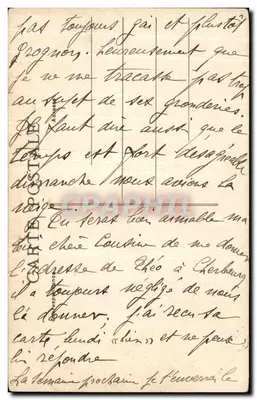 pas toujours gai et plustôt
grognon. Heureusement que
je ne me tracasse pas trop
au sujet de ses gronderies.
Il faut dire aussi que le
temps est fort désagréable
dimanche nous avions la
neige
Tu serais bien aimable ma
chère Cousine de me donner
l'adresse de Théo à Cherbourg
il a toujours négligé de nous
la donner, j'ai reçu sa
carte lundi et ne peux
lui répondre
La semaine prochaine je t'enverrai le
CARTE POSTALE
CPAPHIL